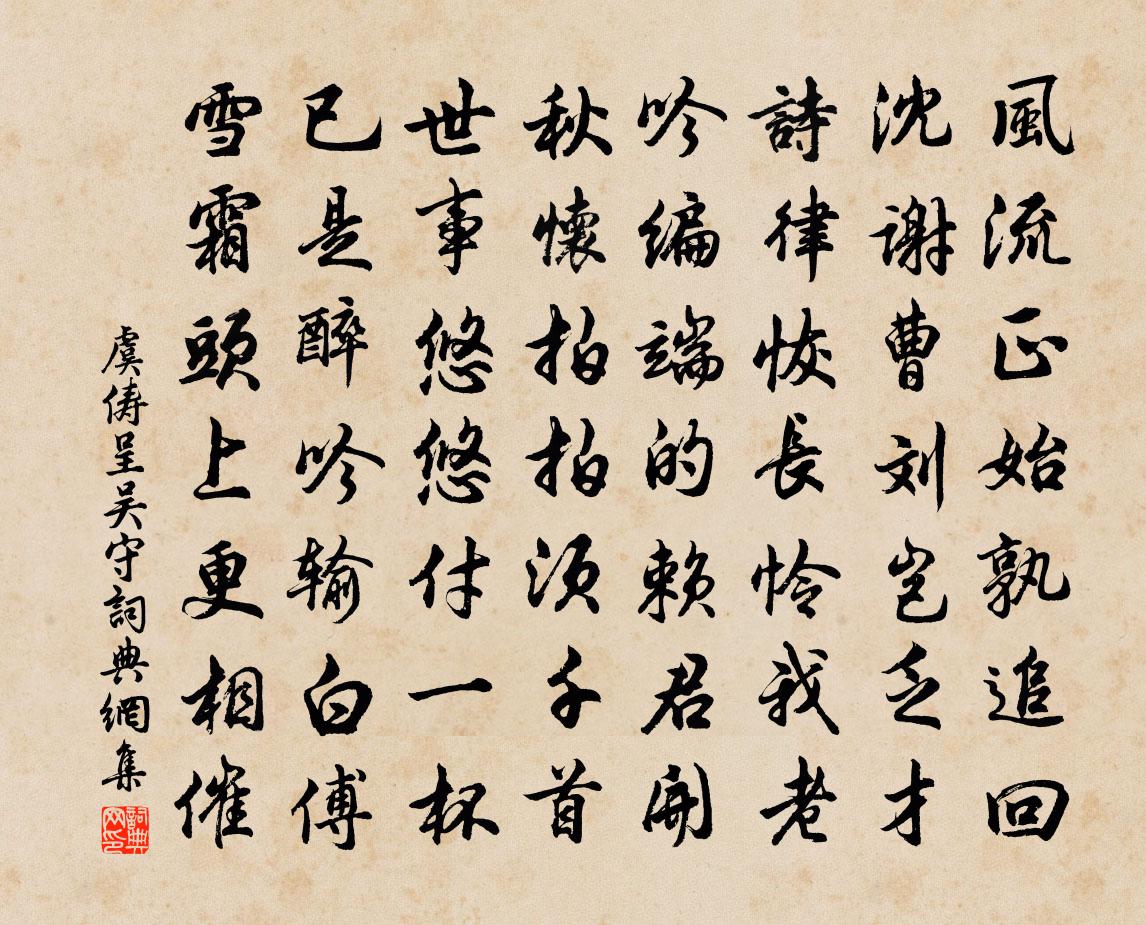 風流正始孰追回
沈謝曹刘豈乏才
詩律恢長怜我老
吟编端的赖君開
秋懷拍拍须千首
世事悠悠付一杯
已是醉吟输白傅
雪霜頭上更相催
虞俦呈吴守詞典網集
詞典網印